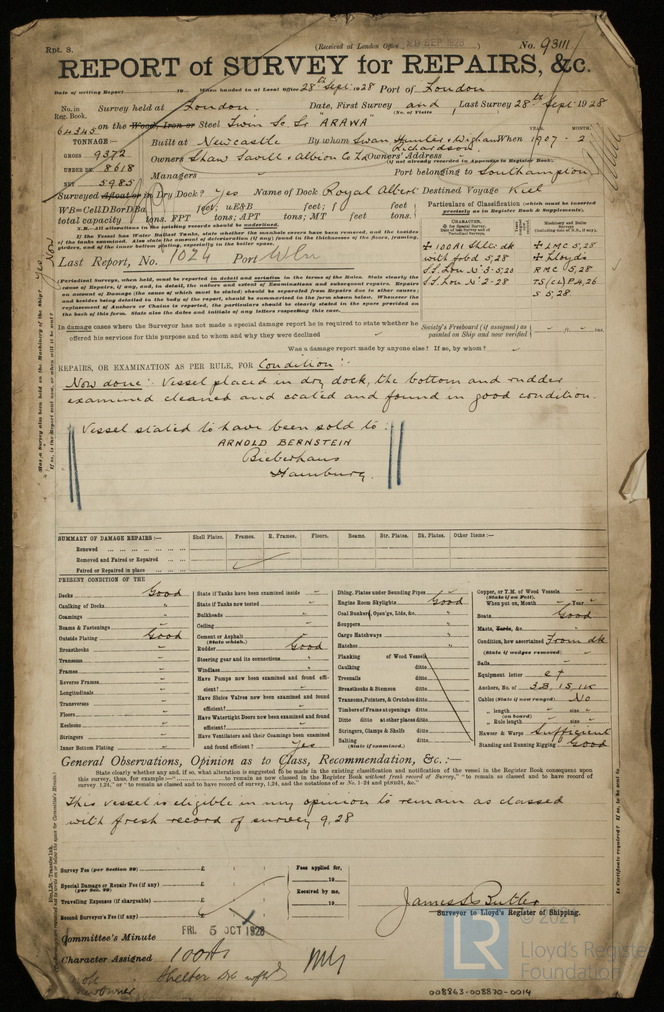 Rpt. 8.
(Received at London Office 29 SEP 1928)
No. 93111
REPORT of SURVEY for REPAIRS, &c.
Date of writing Report 19 When handed in at Local Office 28th Sept. 1928 Port of London
No. in Reg. Book. Survey held at London. Date, First Survey and Last Survey 28th Sept 1928
(No. of Visits)
64345 on the Wood, Iron or Steel Twin Sc. Sr ARAWA
TONNAGE:— Built at Newcastle By whom Swan Hunter & Wigham Richardson When 1907 - 2
YEAR. MONTH.
GROSS 9372 Owners Shaw Savill & Albion Co Ld Owners' Address
(if not already recorded in Appendix to Register Book).
UNDER DK. 8618 Managers Port belonging to Southampton
NET 5985
Surveyed Afloat or in Dry Dock? Yes Name of Dock Royal Albert Destined Voyage Kiel
WB=CellDBorDBa feet; uE&B feet; f feet
total capacity tons. FPT tons; APT tons; MT feet tons.
N.B.—All alterations in the existing records should be underlined.
Particulars of Classification (which must be inserted precisely as in Register Book & Supplements).
Last Report, No. 1024 Port Wln
✠ 100A1 Shltr dk ✠ LMC 5,28
with fbd 5,28 ✠ Lloyds
S.S. Lon No 3-5,20 RMC 5,28
S.S. Lon No 2-28 TS(CL) P4,26
S 5,28.
(Periodical Surveys, when held, must be reported in detail and seriatim in the terms of the Rules. State clearly the
causes of Repairs, if any, and, in detail, the nature and extent of Examinations and subsequent repairs. Repairs
on account of Damage (the cause of which must be stated) should be separated from Repairs due to other causes;
and besides being detailed in the body of the report, should be summarised in the form shown below. Whenever the
replacement of Anchors or Chains is reported, the particulars should be clearly stated in the space provided on
the back of this form. State also the dates and initials of any letters respecting this case.
In damage cases where the Surveyor has not made a special damage report he is required to state whether he
offered his services for this purpose and to whom and why they were declined
Society's Freeboard (if assigned) as painted on Ship and now verified ft. ins.
Was a damage report made by anyone else? If so, by whom?
REPAIRS, OR EXAMINATION AS PER RULE, FOR Condition:-
Now done:- Vessel placed in dry dock, the bottom and rudder
examined cleaned and coated and found in good condition.
Vessel stated to have been sold to
ARNOLD BERNSTEIN
Bieberhaus
Hamburg.
SUMMARY OF DAMAGE REPAIRS:— Shell Plates. Frames. R. Frames. Floors. Beams. Str. Plates. Dk. Plates. Other Items:—
Renewed
Removed and Faired or Repaired
Faired or Repaired in place
PRESENT CONDITION OF THE
Decks Good
Caulking of Decks
Coamings
Beams & Fastenings
Outside Plating Good
Breasthooks
Transoms
Frames
Reverse Frames
Longitudinals
Transverses
Floors
Keelsons
Stringers
Inner Bottom Plating
State if Tanks have been examined inside
State if Tanks now tested
Bulkheads
Ceiling
Cement or Asphalt
(State which.)
Rudder Good
Steering gear and its connections
Windlass
Have Pumps now been examined and found efficient?
Have Sluice Valves now been examined and found efficient?
Have Watertight Doors now been examined and found efficient?
Have Ventilators and their Coamings been examined and found efficient? Yes
Dblng. Plates under Sounding Pipes
Engine Room Skylights Good
Coal Bunkers, Open'gs, Lids, &c.
Scuppers
Cargo Hatchways
Hatches
Planking of Wood Vessels
Caulking ditto
Treenails ditto
Breasthooks & Stemson ditto
Transoms, Pointers, & Crutches ditto
Timbers of Frame at openings ditto
Ditto ditto at other places ditto
Stringers, Clamps & Shelfs ditto
Salting ditto
(State if examined.)
Copper, or Y.M. of Wood Vessels
(State if on Felt).
When put on, Month Year
Boats Good
Masts, Yards, &c.
Condition, how ascertained From dk
(State if wedges removed)
Sails
Equipment letter e†
Anchors, No. of 3B, 1S, 1K
Cables (State if now ranged) No
„ length size
(on board)
„ Rule length size
Hawser & Warps Sufficient
Standing and Running Rigging Good
General Observations, Opinion as to Class, Recommendation, &c.:—
State clearly whether any and, if so, what alteration is suggested to be made in the existing classification and notification of the vessel in the Register Book consequent upon
This vessel is eligible in my opinion to remain as classed
with fresh record of survey 9,28
Survey Fee (per Section 29) £
Special Damage or Repair Fee (if any) £
(per Sec. 29)
Travelling Expenses (if chargeable) £
Second Surveyor's Fee (if any) £
Fees applied for, 19
Received by me, 19
James S Butler
Surveyor to Lloyd's Register of Shipping.
Committee's Minute FRI 5 OCT 1928
Character Assigned 100A1
Shelter Dk wfbd
note
new owner
© 2021
LR
Lloyd's Register
Foundation
008863-008870-0014